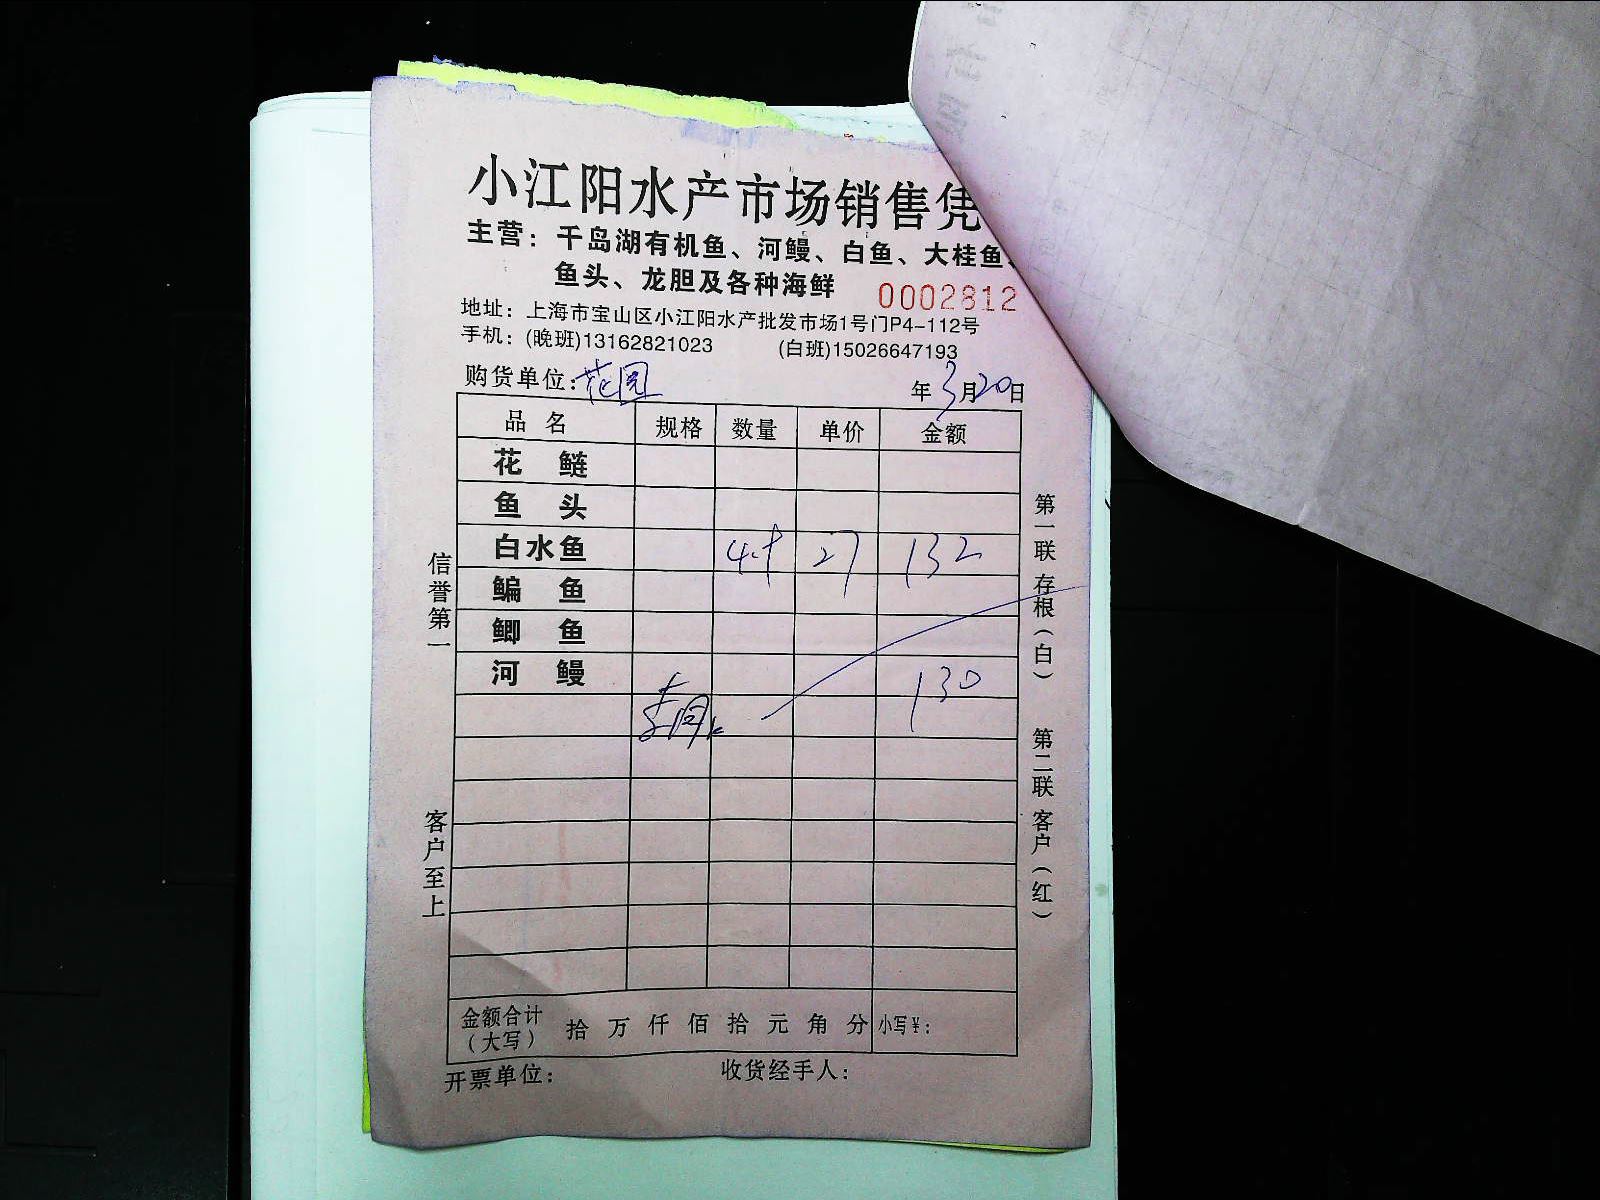 小江阳水产市场销售凭
主营：千岛湖有机鱼、河鳗、白鱼、大桂鱼、
鱼头、龙胆及各种海鲜
0002812
地址：上海市宝山区小江阳水产批发市场1号门P4-112号
手机：(晚班)13162821023 (白班)15026647193
购货单位：花园 年3月20日
品名 规格 数量 单价 金额
花鲢
鱼头
白水鱼 27 132
鳊鱼
鲫鱼
河鳗
130
金额合计（大写） 拾 万 仟 佰 拾 元 角 分 小写¥：
开票单位： 收货经手人：
信誉第一
客户至上
第一联 存根（白）
第二联 客户（红）